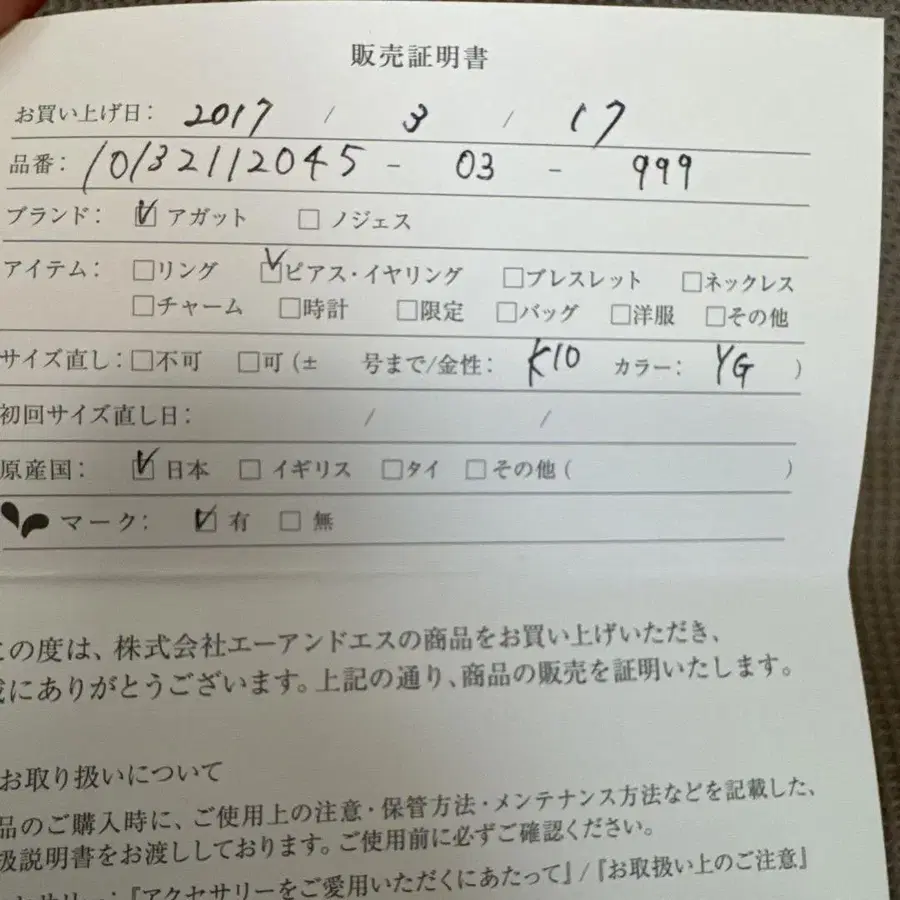 販売証明書
お買い上げ日: 2017 / 3 / 17
品番: 10132112045 - 03 - 999
ブランド: ☑ アガット □ ノジェス
アイテム: □リング ☑ピアス・イヤリング □ブレスレット □ネックレス
□チャーム □時計 □限定 □バッグ □洋服 □その他
サイズ直し: □不可 □可 (± 号まで/金性: K10 カラー: YG )
初回サイズ直し日: / /
原産国: ☑ 日本 □ イギリス □タイ □その他 ( )
マーク: ☑ 有 □ 無
この度は、株式会社エーアンドエスの商品をお買い上げいただき、
誠にありがとうございます。上記の通り、商品の販売を証明いたします。
お取り扱いについて
品のご購入時に、ご使用上の注意・保管方法・メンテナンス方法などを記載した、
扱説明書をお渡ししております。ご使用前に必ずご確認ください。
『アクセサリーをご愛用いただくにあたって』/『お取扱い上のご注意』